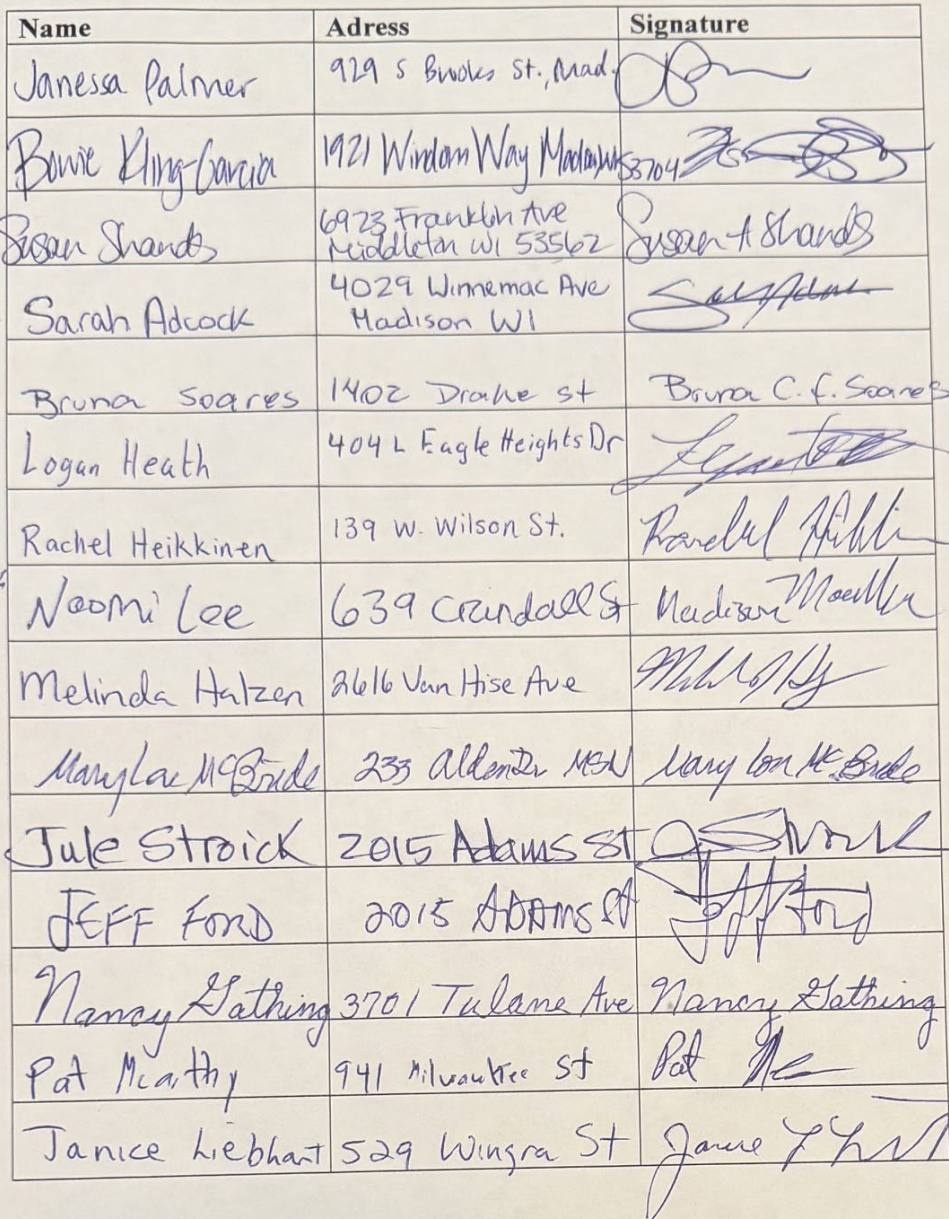 Name Adress Signature
Janessa Palmer 929 S Brooks St., Mad.
Bowie Kling-Garcia 1921 Windom Way Madison, WI 53704
Susan Shands 6923 Franklin Ave Susan A Shands
Middleton WI 53562
Sarah Adcock 4029 Winnemac Ave
Madison WI
Bruna Soares 1402 Drake st Bruna C. f. Soares
Logan Heath 404 L Eagle Heights Dr
Rachel Heikkinen 139 W. Wilson St.
Naomi Lee 639 Crandall St Madison
Melinda Halzen 2616 Van Hise Ave
Mary Lou McBride 233 Alden Dr MSN Mary Lou McBride
Jule Stroick 2015 Adams St J Stroick
JEFF FORD 2015 ADAMS St Jeff Ford
Nancy Gathing 3701 Tulane Ave Nancy Gathing
Pat Mcarthy 941 Milwaukee St Pat
Janice Liebhart 529 Wingra St Janice